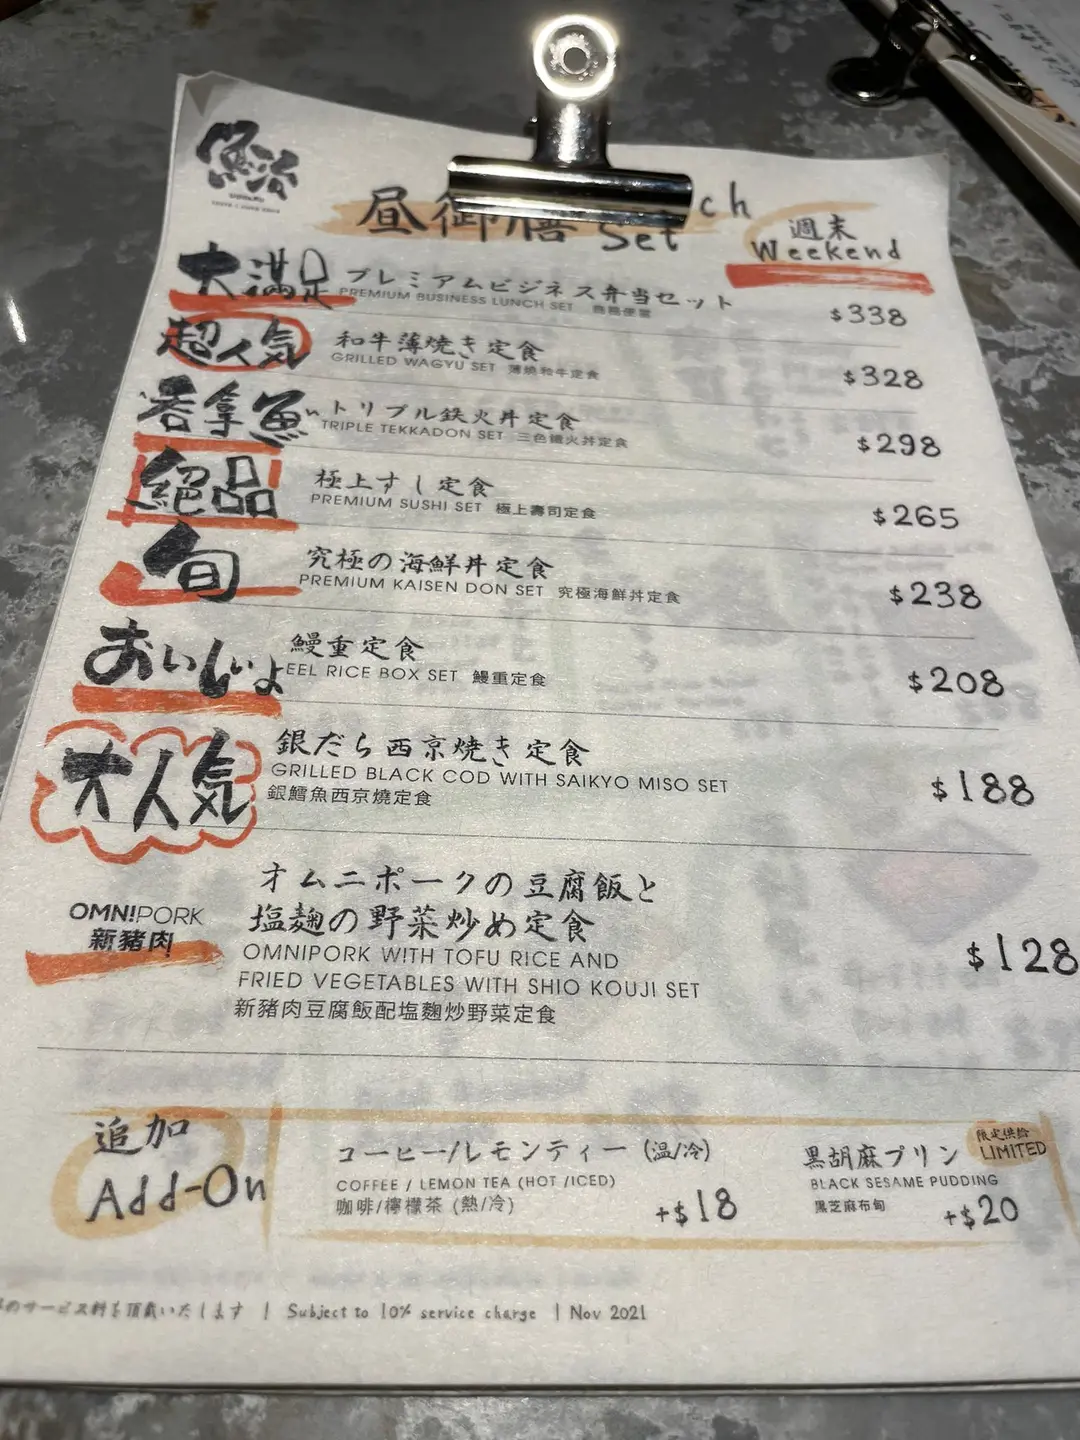 魚治
昼御膳
ch
Set
週末
Weekend
大満足
プレミアムビジネス弁当セット
PREMIUM BUSINESS LUNCH SET 商務便當
$338
超人気
和牛薄焼き定食
GRILLED WAGYU SET 薄燒和牛定食
$328
吞拿魚
トリプル鉄火丼定食
TRIPLE TEKKADON SET 三色鐵火丼定食
$298
絕品
極上すし定食
PREMIUM SUSHI SET 極上壽司定食
$265
旬
究極の海鮮丼定食
PREMIUM KAISEN DON SET 究極海鮮丼定食
$238
おいしいよ
鰻重定食
EEL RICE BOX SET 鰻重定食
$208
大人気
銀だら西京焼き定食
GRILLED BLACK COD WITH SAIKYO MISO SET
銀鱈魚西京燒定食
$188
OMN!PORK
新豬肉
オムニポークの豆腐飯と
塩麹の野菜炒め定食
OMNIPORK WITH TOFU RICE AND
FRIED VEGETABLES WITH SHIO KOUJI SET
新豬肉豆腐飯配塩麴炒野菜定食
$128
追加
Add-On
コーヒー/レモンティー (温/冷)
COFFEE / LEMON TEA (HOT /ICED)
咖啡/檸檬茶 (熱/冷)
+$18
黒胡麻プリン
限定供給
LIMITED
BLACK SESAME PUDDING
黑芝麻布甸
+$20
のサービス料を頂戴いたします | Subject to 10% service charge | Nov 2021